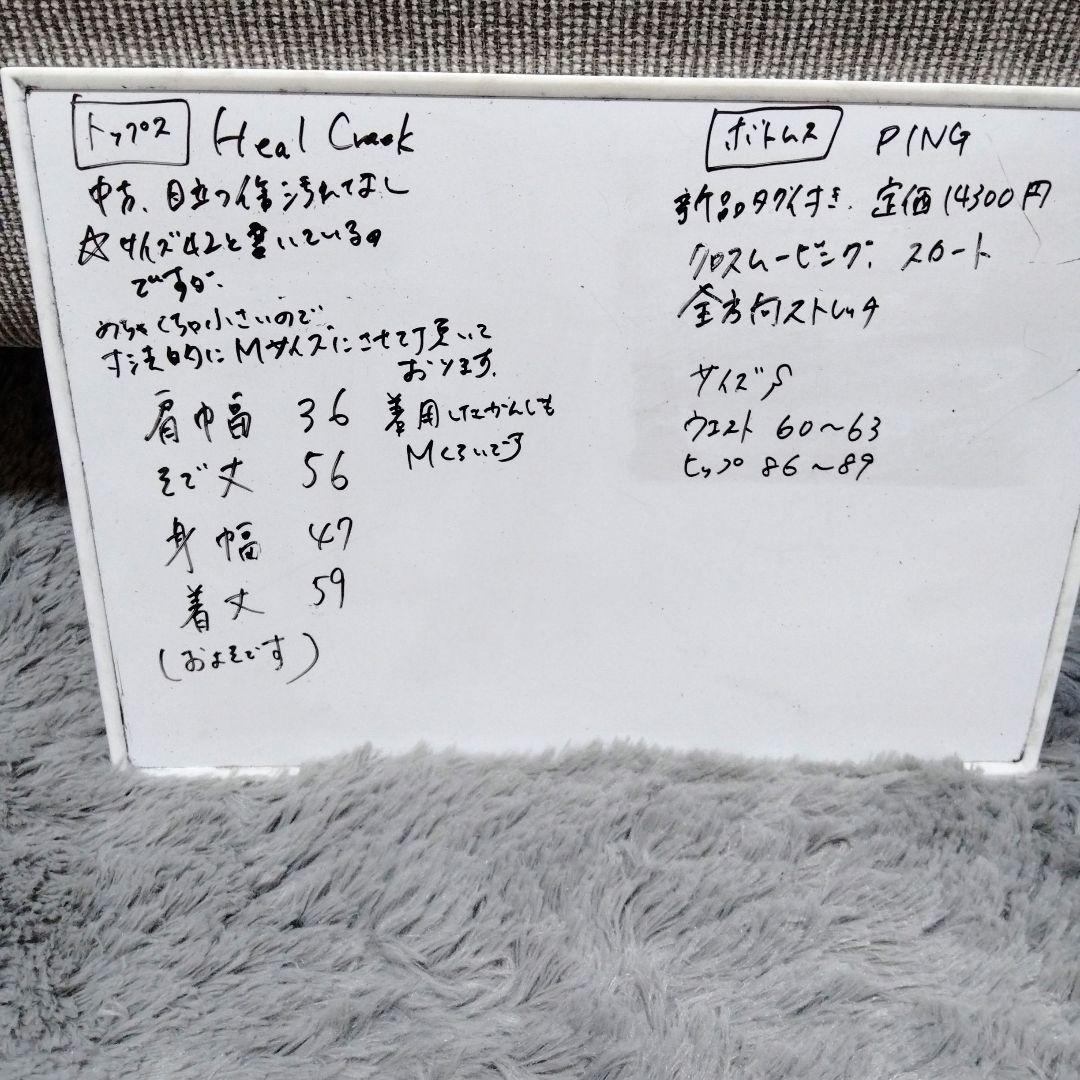 トップス Heal Creek
中古、目立つ傷汚れてなし
☆サイズ42と書いているの
ですが、
めちゃくちゃ小さいので
寸法的にMサイズにさせて頂いて
おります。
肩巾幅 36
そで丈 56
身幅 47
着丈 59
(およそです)
着用したかんじも
Mくらいです
ボトムス PING
新品タグ付き、定価14300円
クロスムービング、スカート
全方向ストレッチ
サイズS
ウエスト 60〜63
ヒップ 86〜89